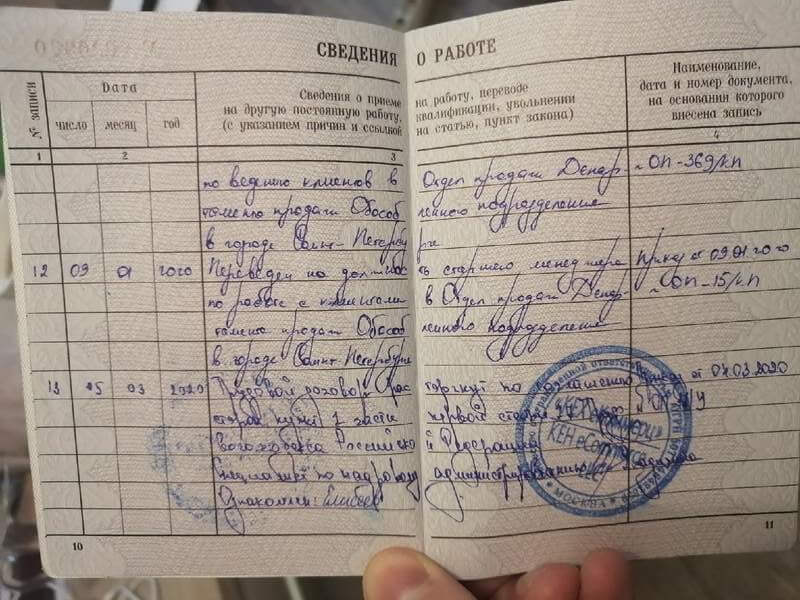 СВЕДЕНИЯ О РАБОТЕ
№ записи
Дата
число месяц год
Сведения о приеме на работу, переводе
на другую постоянную работу, квалификации, увольнении
(с указанием причин и ссылкой на статью, пункт закона)
Наименование,
дата и номер документа,
на основании которого
внесена запись
1 2 3 4
по ведению клиентов в Отдел продаж Депар- ОП-369/кп
тамента продаж Обособ ленного подразделения
в городе Санкт-Петербур ге
12 09 01 2020 Переведен на должнос ть старшего менеджера Приказ от 09 01 2020
по работе с клиентами в Отдел продаж Депар- ОП-15/кп
тамента продаж Обособ ленного подразделения
в городе Санкт-Петербурге
13 03 2020 Трудовой договор рас торгнут по соглашению от 04.03.2020
сторон, пункт 1 части первой статьи 77
Кодекса Российско й Федерации
Специалист по кадровому администрированию
Ознакомлен:
КЕН еCommerce
LLC
МОСКВА
10
11